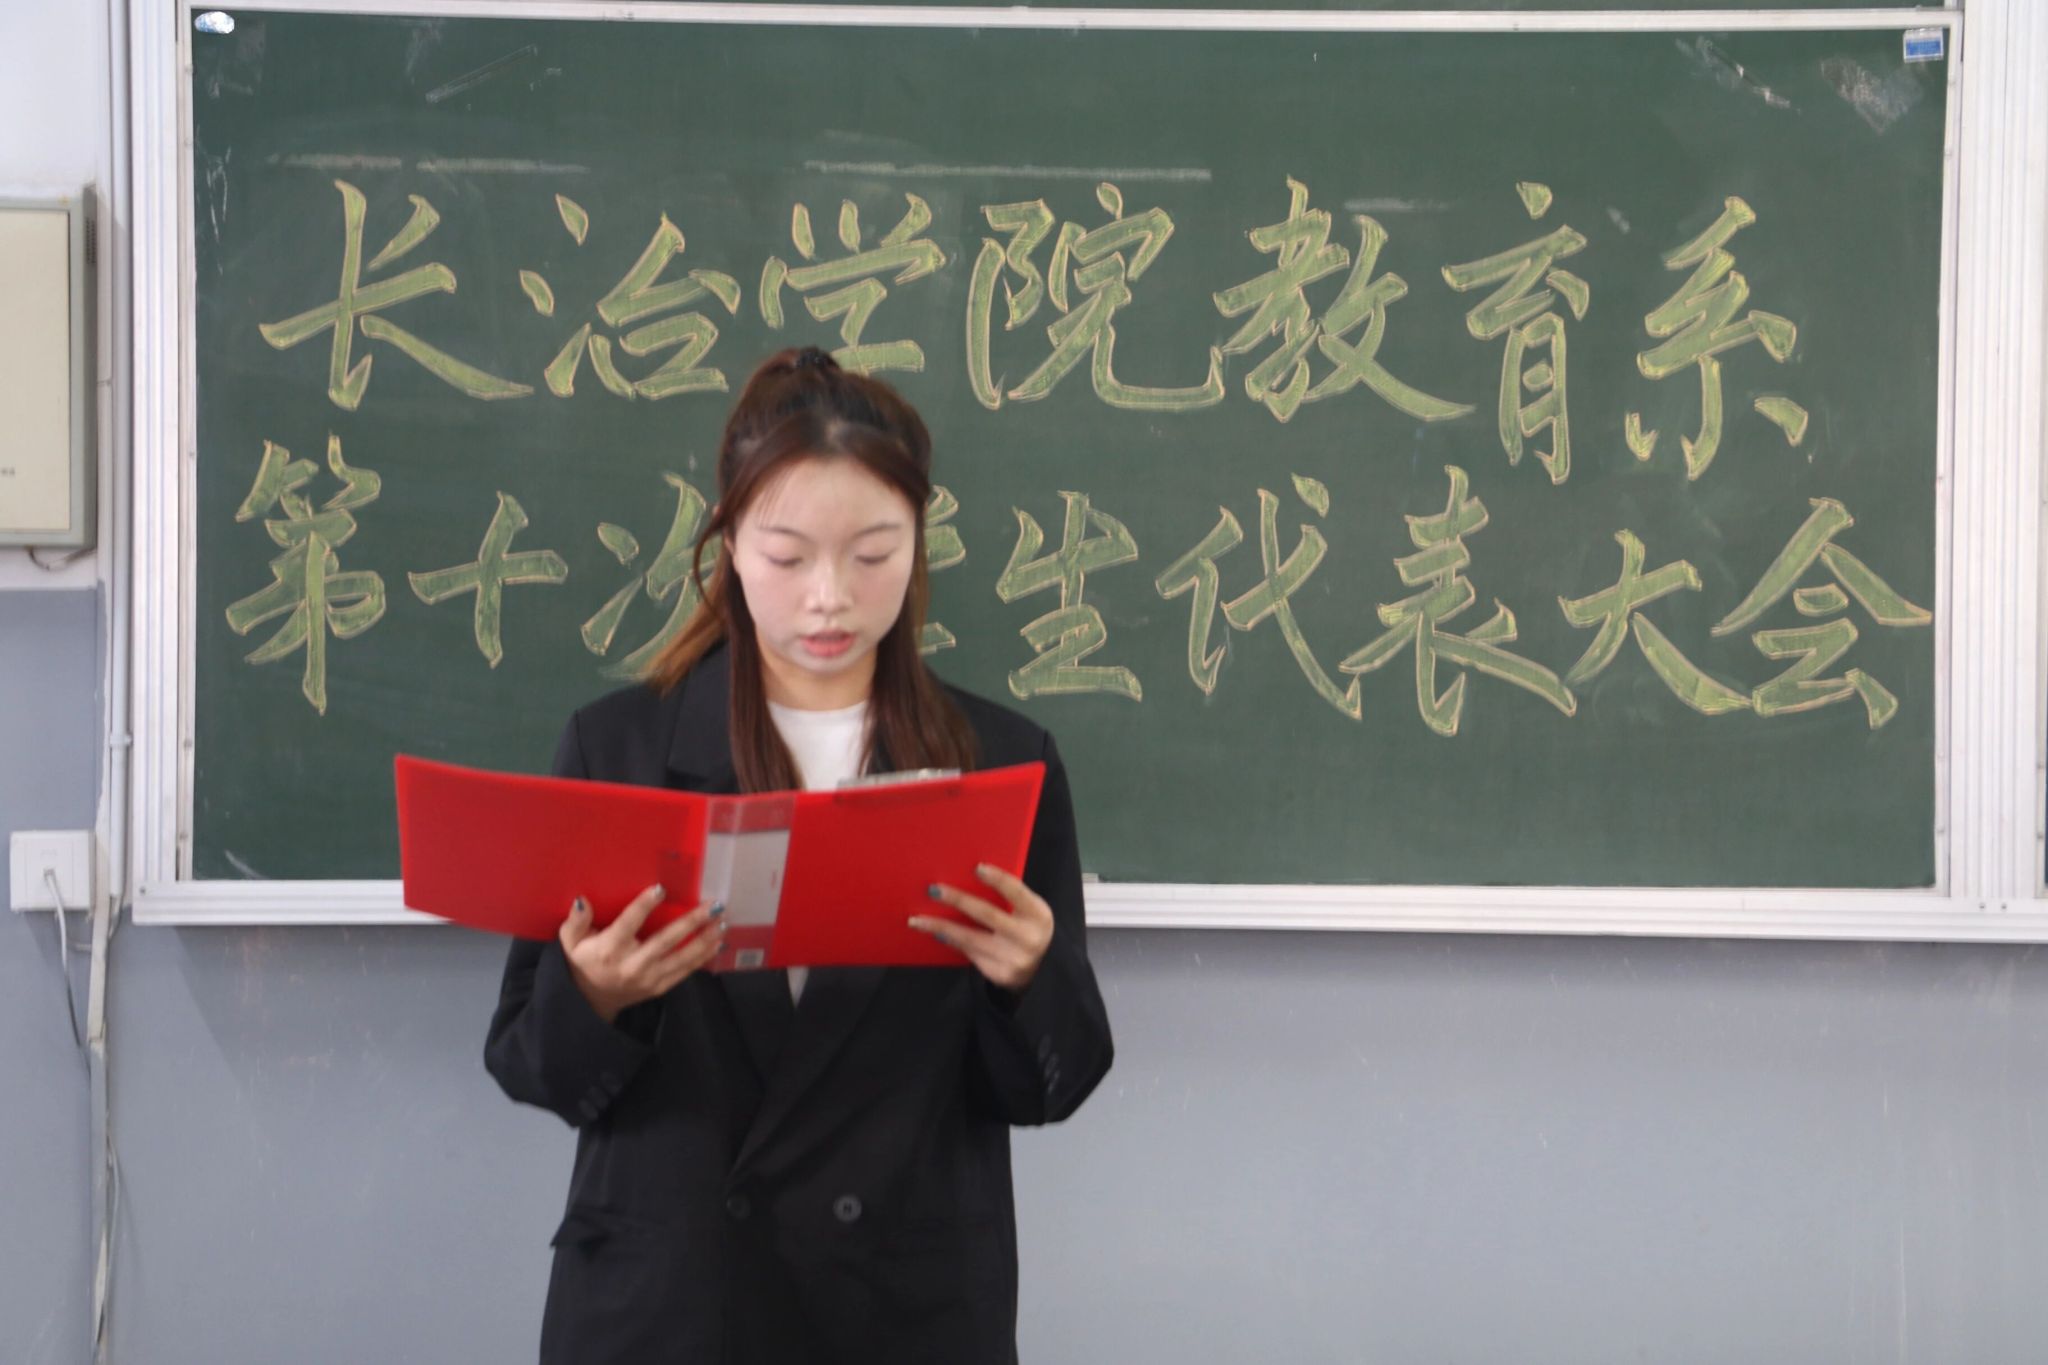 长治学院教育系
第十次学生代表大会